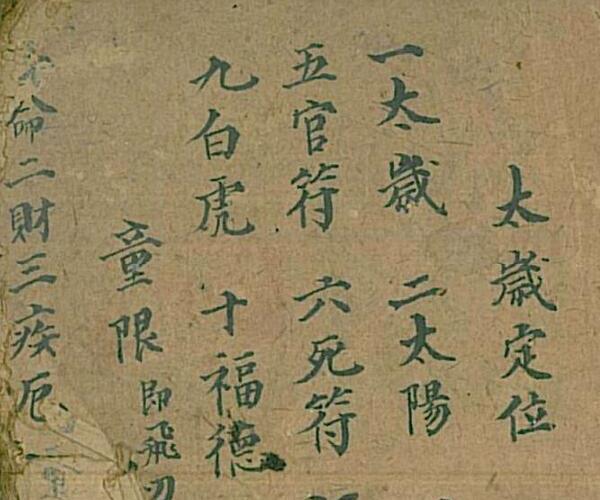 太歲定位
一太歲 二太陽
五官符 六死符
九白虎 十福德
童限 即飛刃
命二財三疾厄